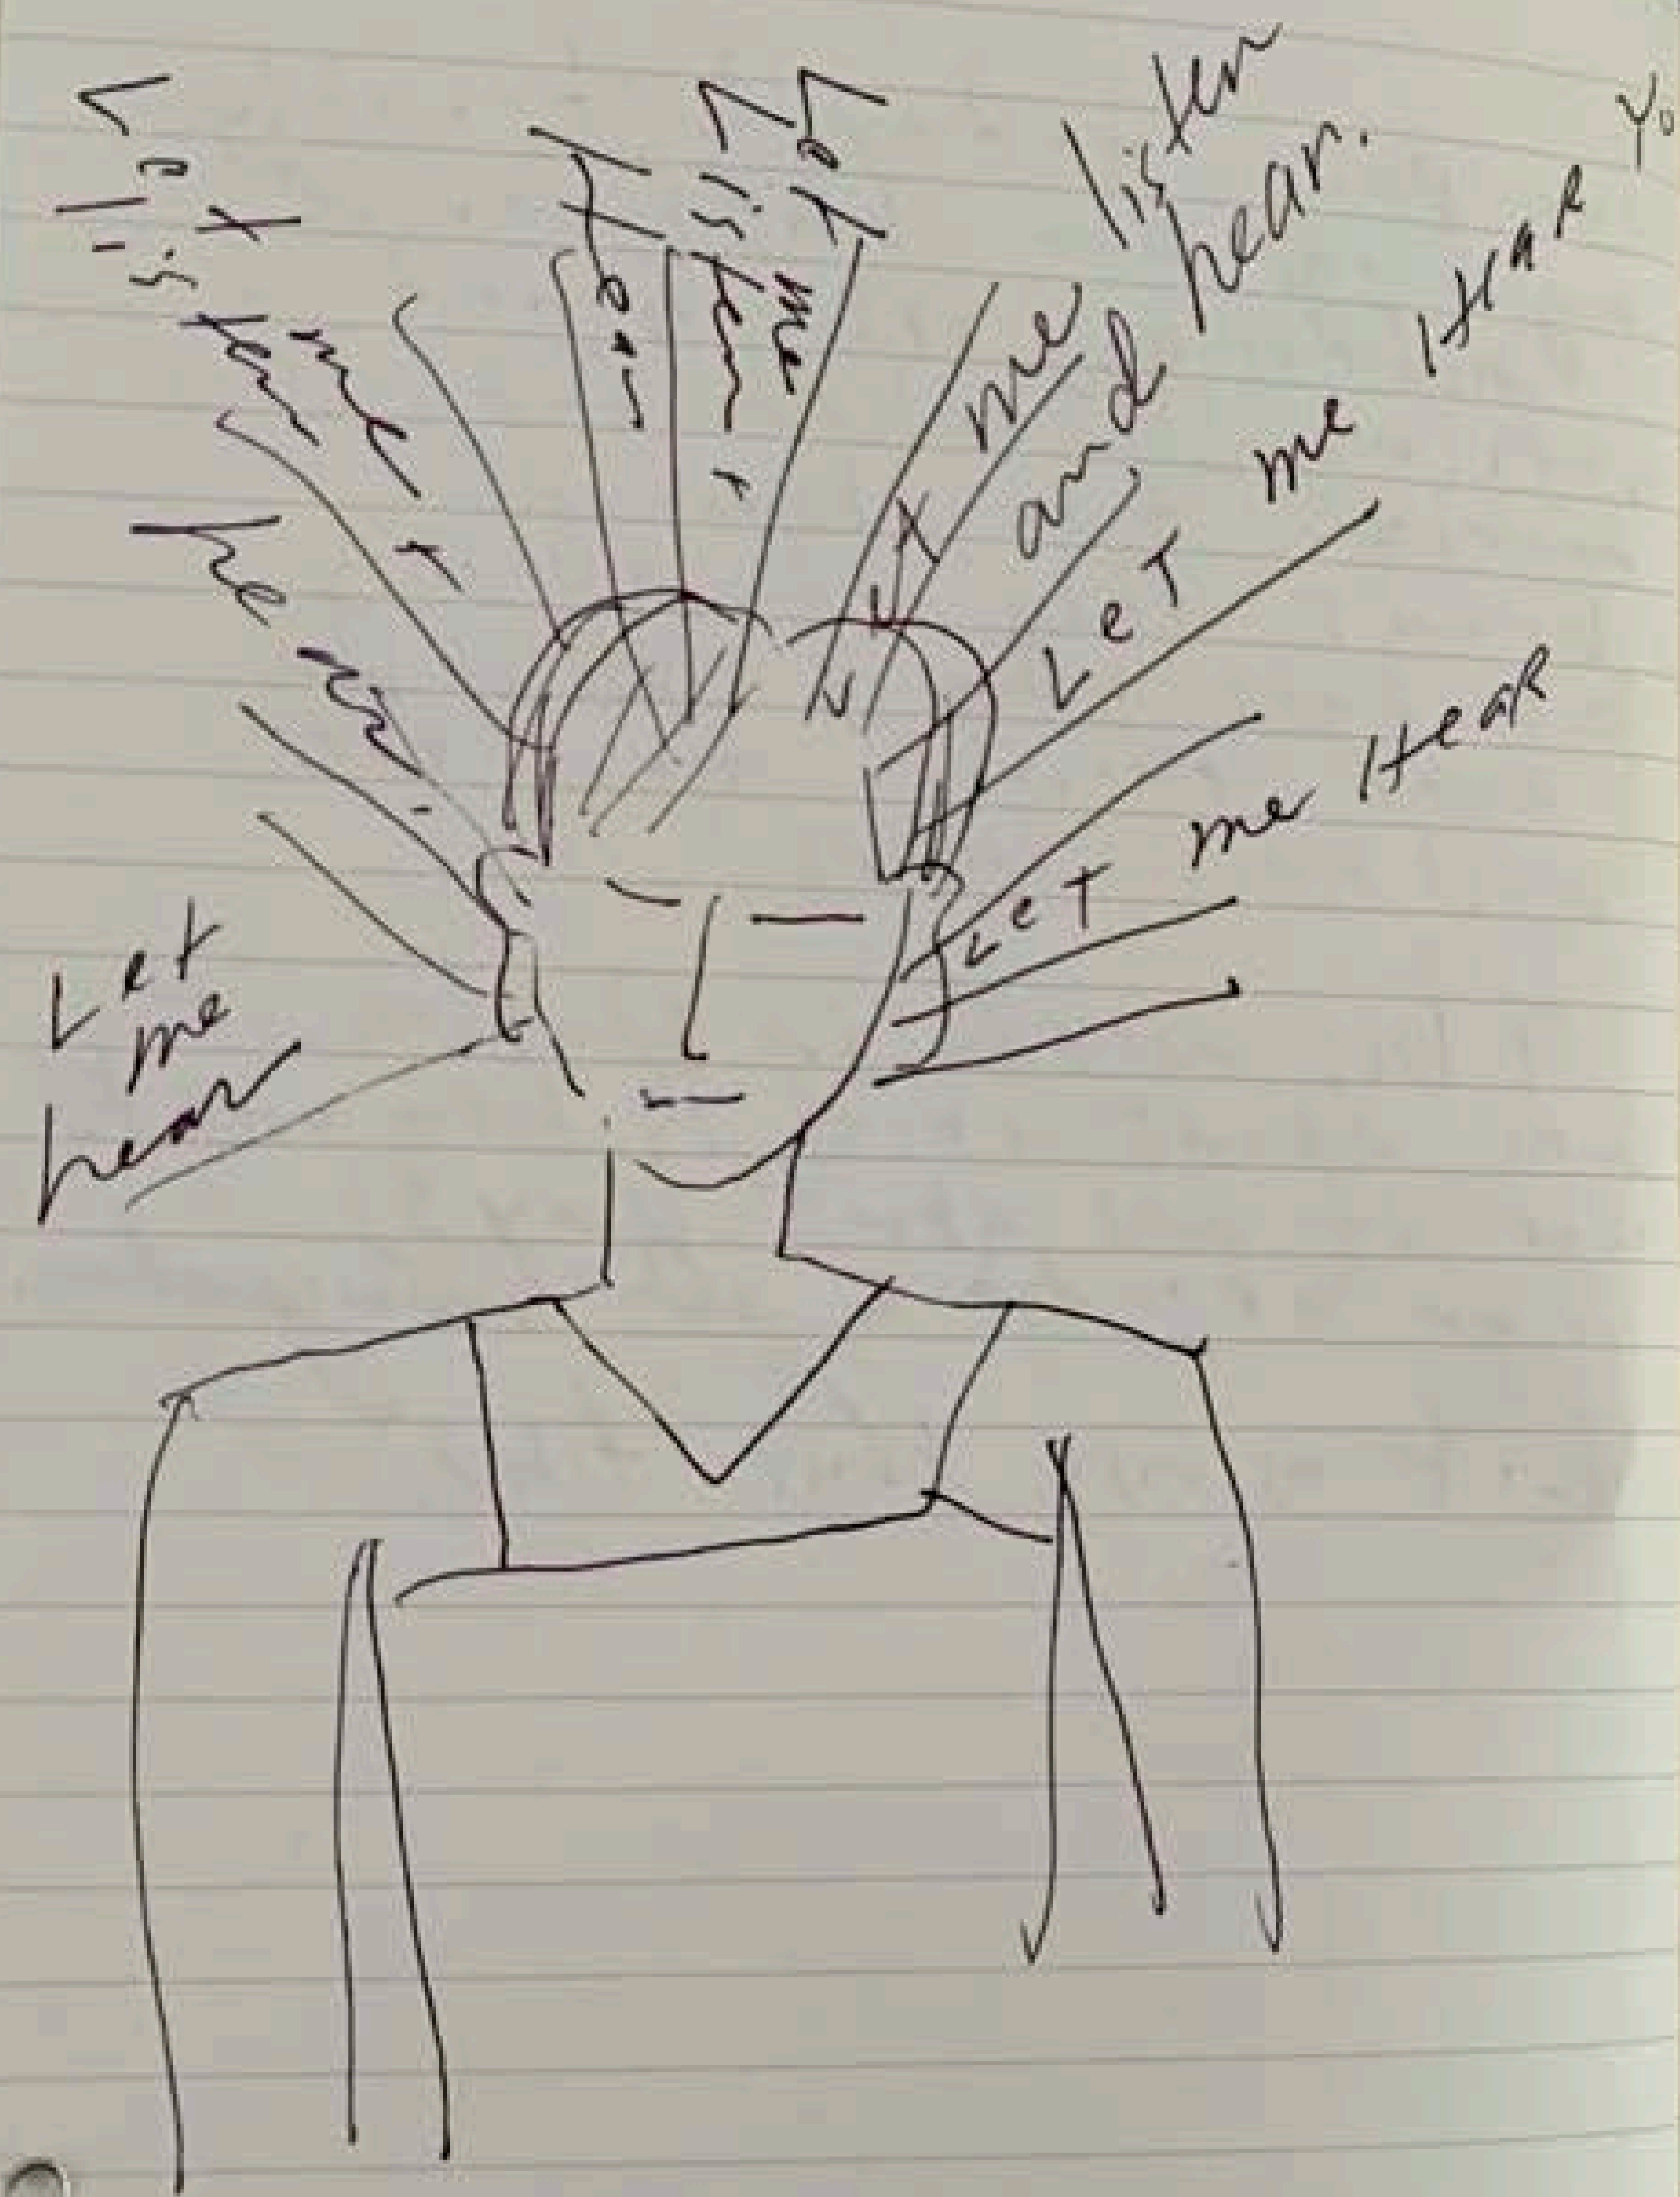 Let me
listen,
hear.
Let me
listen,
hear
Let me listen
and hear.
Let me Hear Yo
Let me Hear
Let
me
hear